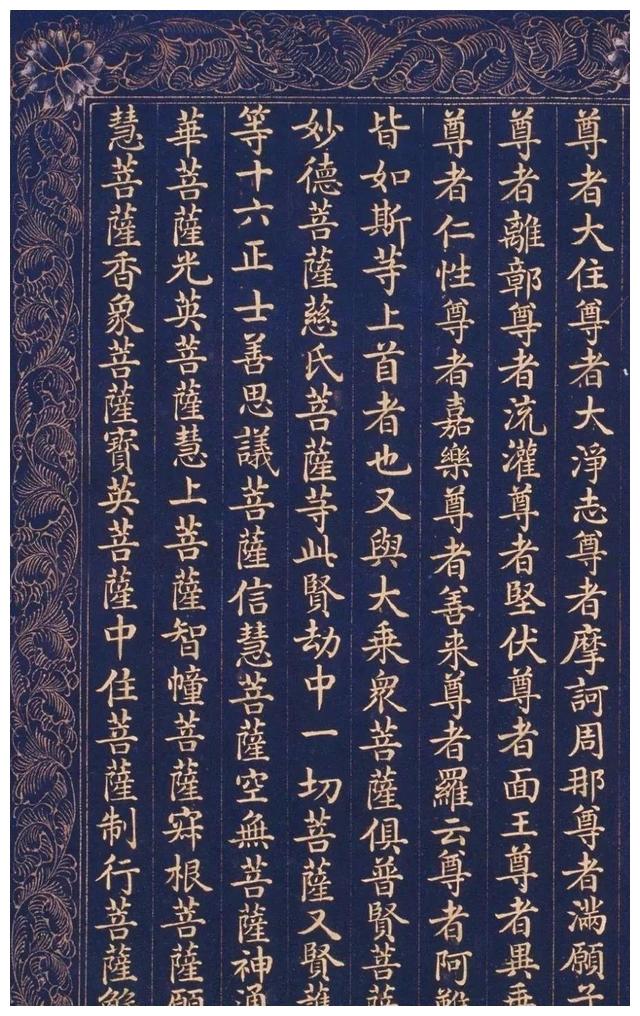 尊者大住尊者大淨志尊者摩訶周那尊者滿願子
尊者離鄣尊者流灌尊者堅伏尊者面王尊者異乗
尊者仁性尊者嘉樂尊者善来尊者羅云尊者阿難
皆如斯等上首者也又與大乗衆菩薩俱普賢菩薩
妙德菩薩慈氏菩薩等此賢劫中一切菩薩又賢護
等十六正士善思議菩薩信慧菩薩空無菩薩神通
華菩薩光英菩薩慧上菩薩智幢菩薩寂根菩薩願
慧菩薩香象菩薩寶英菩薩中住菩薩制行菩薩解